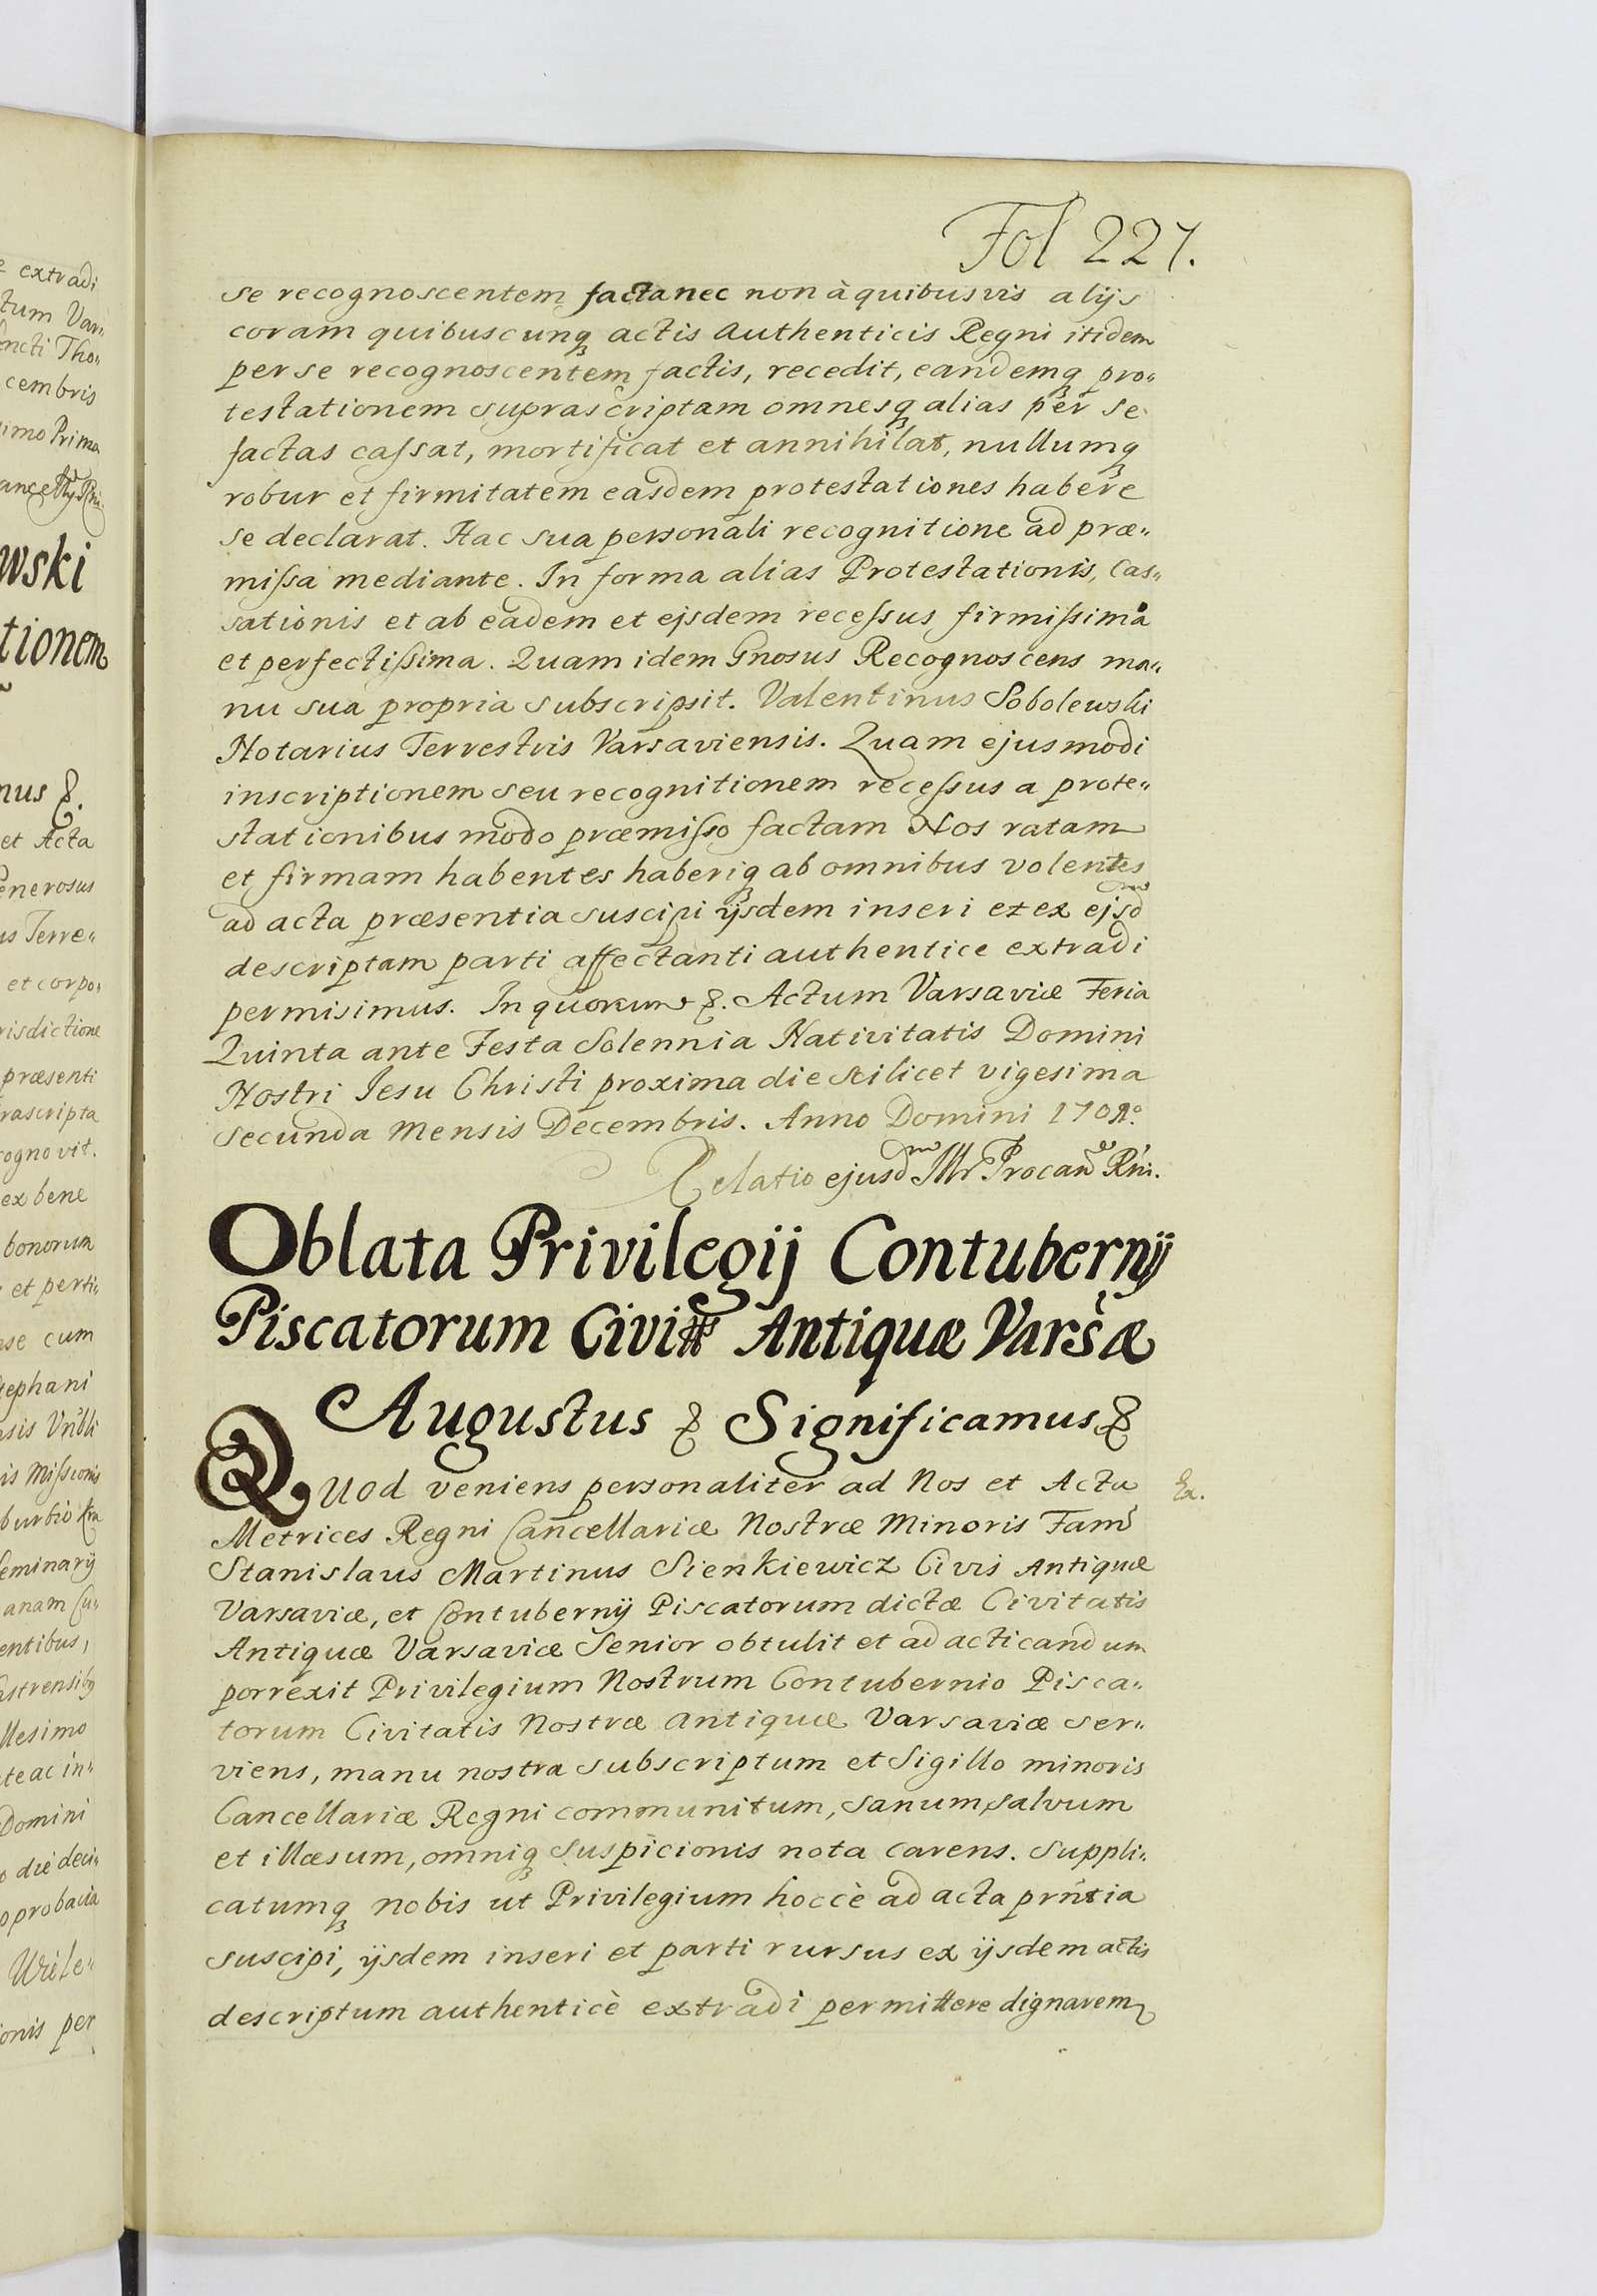 Fol 227.
se recognoscentem facta nec non à quibusvis alijs
coram quibuscunq́ actis authenticis Regni itidem
per se recognoscentem factis, recedit, eandemq́ pro„
testationem suprascriptam omnesq́ alias per se
factas caſsat, mortificat et annihilat, nullumq́
robur et firmitatem easdem protestationes habere
se declarat. Hac sua personali recognitione ad præ„
miſsa mediante. In forma alias Protestationis, Cas„
sationis et ab eadem et ejsdem receſsus firmiſsima
et perfectiſsima. Quam idem Gnosus Recognoscens ma„
nu sua propria subscripsit. Valentinus Sobolewski
Notarius Terrestris Varsaviensis. Quam ejusmodi
inscriptionem seu recognitionem receſsus a prote„
stationibus modo præmiſso factam Nos ratam
et firmam habentes haberiq́ ab omnibus volentes
ad acta præsentia suscipi ijsdem inseri et ex ejsd
descriptam parti affectanti authentice extradi
permisimus. In quorum &. Actum Varsaviæ Feria
Quinta ante Festa Solennia Nativitatis Domini
Nostri Jesu Christi proxima die scilicet vigesima
secunda Mensis Decembris. Anno Domini
Relatio ejusd Illr Procan Rni.
Oblata Privilegij Contubernij
Piscatorum Civitt Antiquæ Varsæ
Augustus & Significamus &
QUOd veniens personaliter ad Nos et Acta
Metrices Regni Cancellariæ Nostræ Minoris Fam
Stanislaus Martinus Sienkiewicz Civis Antiquæ
Varsaviæ, et Contubernij Piscatorum dictæ Civitatis
Antiquæ Varsaviæ Senior obtulit et ad acticandum
porrexit Privilegium Nostrum Contubernio Pisca„
torum Civitatis Nostræ Antiquæ Varsaviæ ser„
viens, manu nostra subscriptum et Sigillo minoris
Cancellariæ Regni communitum, sanum, salvum
et illæsum, omniq́ suspicionis nota carens. Suppli„
catumq́ nobis ut Privilegium hoccè ad acta prntia
suscipi, ijsdem inseri et parti rursus ex ijsdem actis
descriptum authenticè extradi permittere dignarem